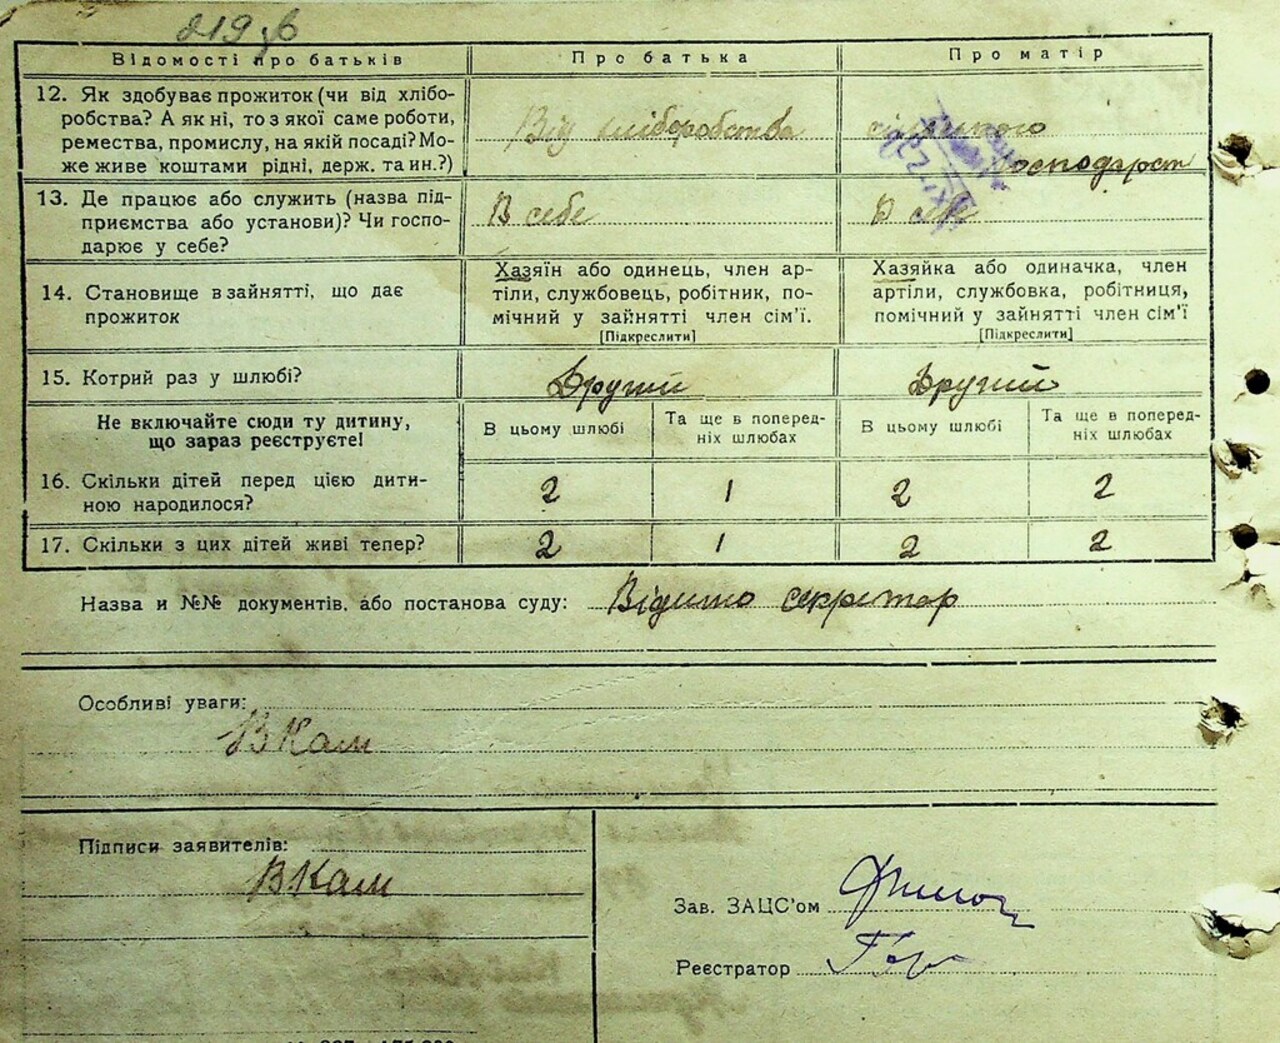 219 зв
Відомості про батьків
Про батька
Про матір
12. Як здобуває прожиток (чи від хлібо-
робства? А як ні, то з якої саме роботи,
ремества, промислу, на якій посаді? Мо-
же живе коштами рідні, держ. та ин.?)
Від хліборобства
сільського
господарст
13. Де працює або служить (назва під-
приємства або установи)? Чи госпо-
дарює у себе?
В себе
В себе
14. Становище в зайнятті, що дає
прожиток
Хазяїн або одинець, член ар-
тіли, службовець, робітник, по-
мічний у зайнятті член сім'ї.
[Підкреслити]
Хазяйка або одиначка, член
артіли, службовка, робітниця,
помічний у зайнятті член сім'ї
[Підкреслити]
15. Котрий раз у шлюбі?
Другий
Другий
Не включайте сюди ту дитину,
що зараз реєструєте!
В цьому шлюбі
Та ще в поперед-
ніх шлюбах
В цьому шлюбі
Та ще в поперед-
ніх шлюбах
16. Скільки дітей перед цією дити-
ною народилося?
2 1 2 2
17. Скільки з цих дітей живі тепер?
2 1 2 2
Назва и №№ документів, або постанова суду: Відито секретар
Особливі уваги:
ВКам
Підписи заявителів:
ВКам
Зав. ЗАЦС'ом
Реєстратор